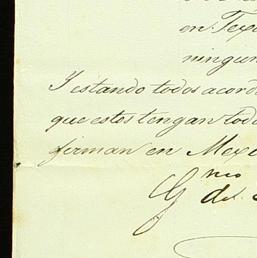 en Tex
ningun
I estando todos acord
que estos tengan todo
firman en Mexi
G
nio
de